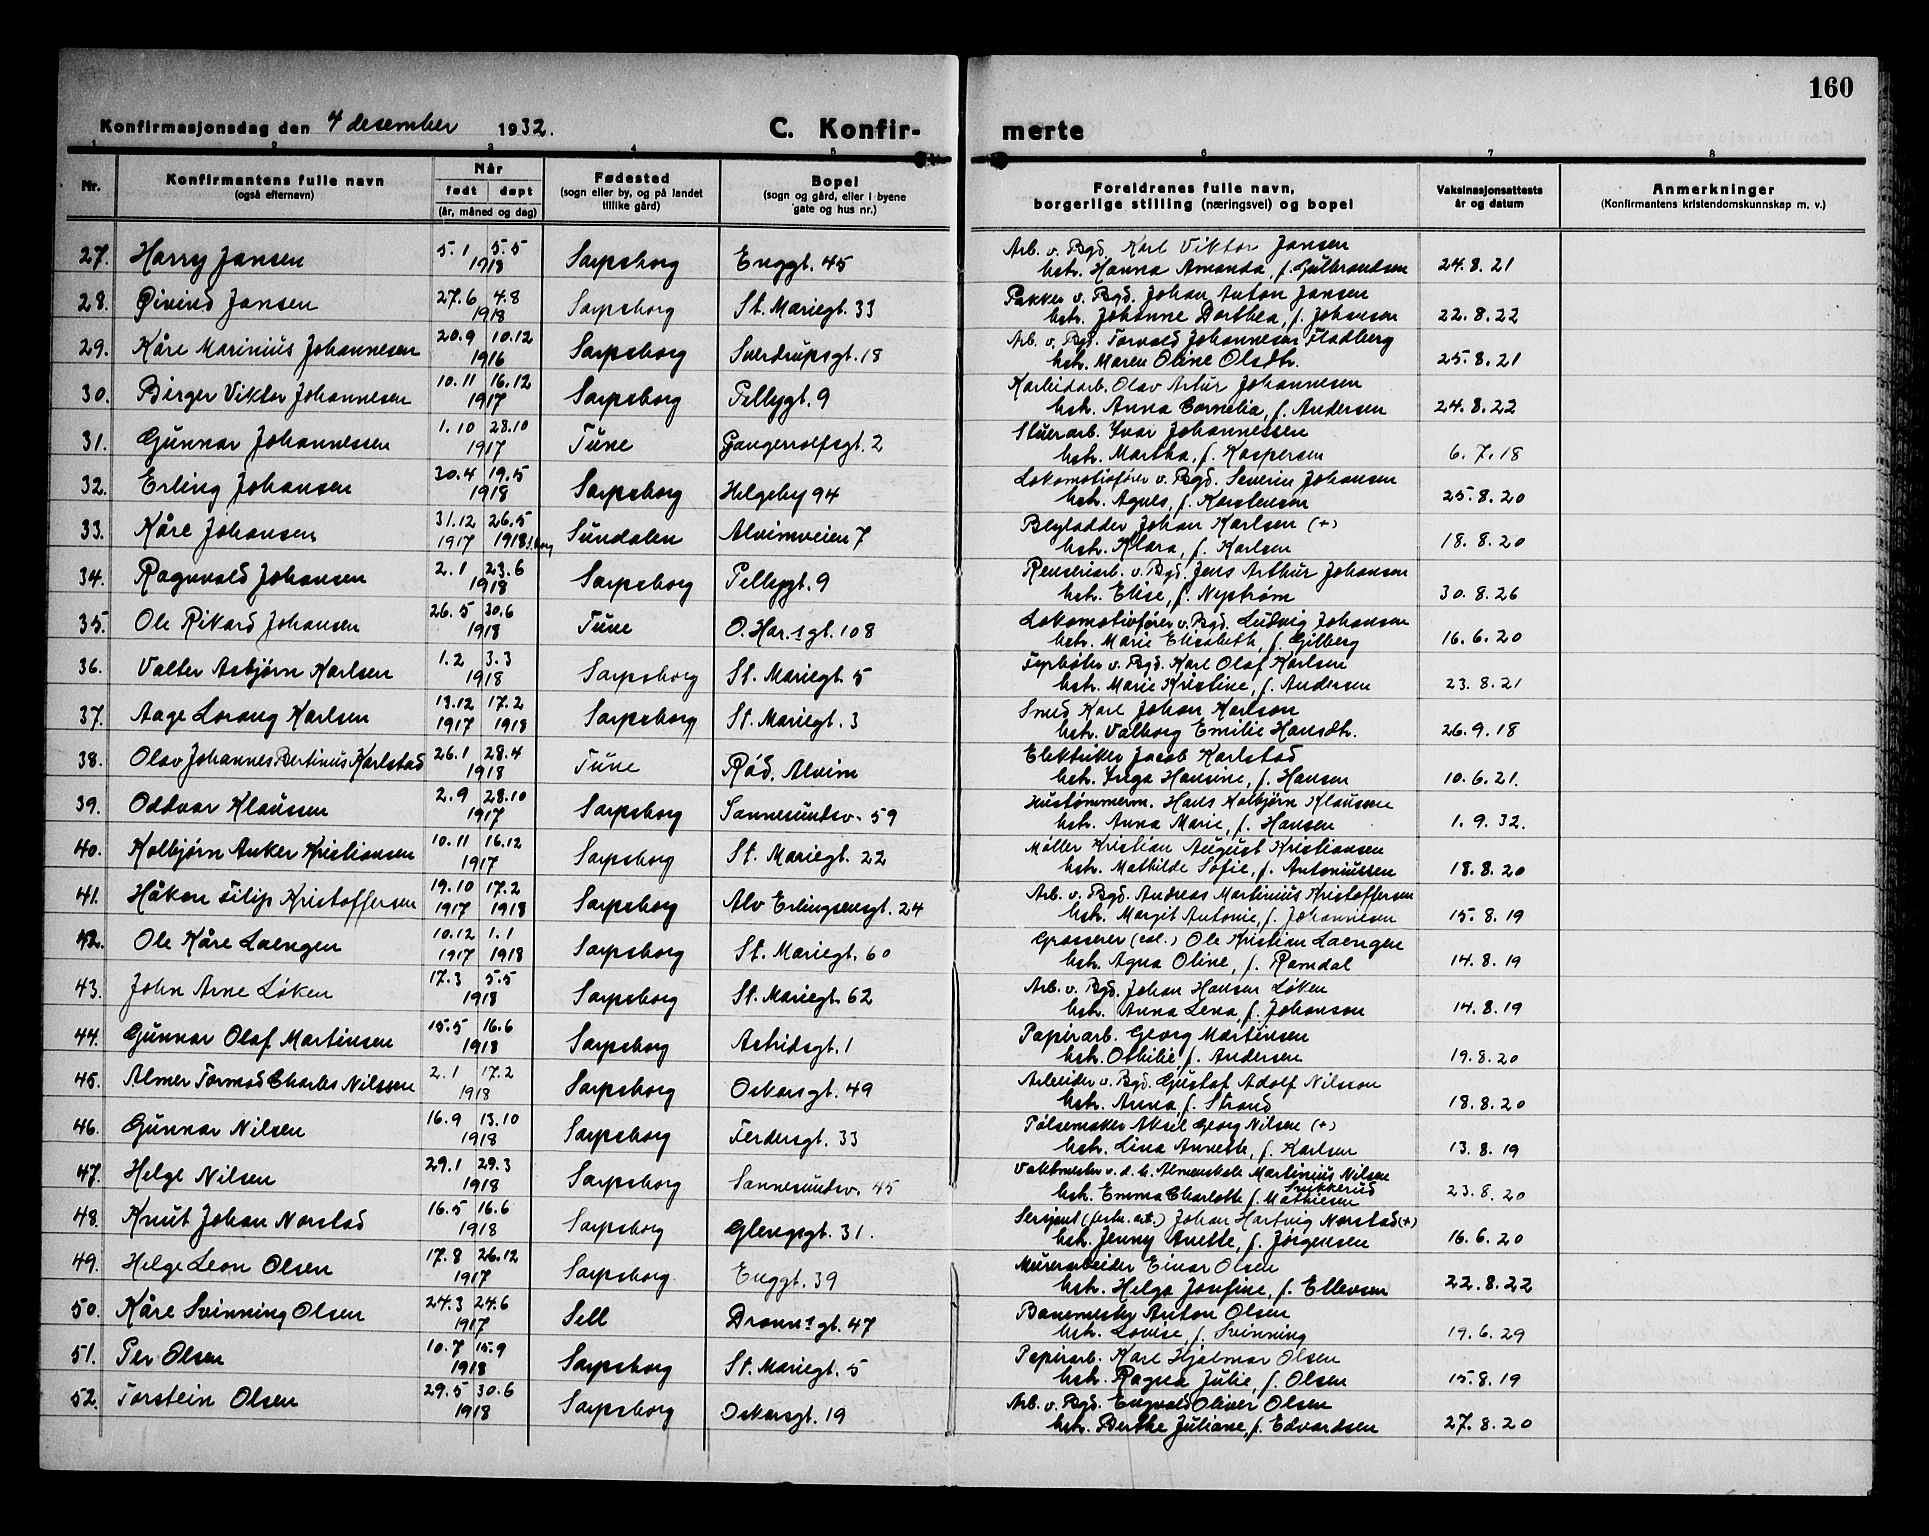 160
Konfirmasjonsdag den 4 desember 1932. C. Konfir- merte
1 2 3 4 5 6 7 8
Nr. Konfirmantens fulle navn (også efternavn) Når født døpt (år, måned og dag) Fødested (sogn eller by, og på landet tillike gård) Bopel (sogn og gård, eller i byene gate og hus nr.) Foreldrenes fulle navn, borgerlige stilling (næringsvei) og bopel Vaksinasjonsattests år og datum Anmerkninger (Konfirmantens kristendomskunnskap m. v.)
27. Harry Jansen 5.1 5.5 1918 Sarpsborg Enggt. 45 Arb. v. Bgd. Karl Viktor Jansen
hstr. Hanna Amanda, f. Gulbrandsen 24.8.21
28. Øivind Jansen 27.6 4.8 1918 Sarpsborg St. Mariegt. 33 Pakker v. Bgd. Johan Anton Jansen
hstr. Johanne Dorthea, f. Johansen 22.8.22
29. Kåre Marinius Johannesen 20.9 10.12 1916 Sarpsborg Sverdrupsgt. 18 Arb. v. Bgd. Torvald Johannesen Fladberg
hstr. Maren Oline Olsdtr. 25.8.21
30. Birger Viktor Johannesen 10.11 16.12 1917 Sarpsborg Pellygt. 9 Karbidarb. Olav Artur Johannesen
hstr. Anna Cornelia, f. Andersen 24.8.22
31. Gunnar Johannessen 1.10 28.10 1917 Tune Gangerrolfsgt. 2 Stuerarb. Ivar Johannessen
hstr. Martha, f. Kaspersen 6.7.18
32. Erling Johansen 30.4 19.5 1918 Sarpsborg Helgeby 94 Lokomotivfører v. Bgd. Severin Johansen
hstr. Agnes, f. Karstensen 25.8.20
33. Kåre Johansen 31.12 1917 26.5 1918 S.borg Sundalen Alvimveien 7 Johan Karlsen (+)
hstr. Klara, f. Karlsen 18.8.20
34. Ragnvald Johansen 2.1 23.6 1918 Sarpsborg Pellygt. 9 Renseriarb. v. Bgd. Jens Arthur Johansen
hstr. Elise, f. Nystrøm 30.8.26
35. Ole Rikard Johansen 26.5 30.6 1918 Tune O. Har.sgt. 108 Lokomotivfører v. Bgd. Ludvig Johansen
hstr. Marie Elisabeth, f. Gilberg 16.6.20
36. Valter Asbjørn Karlsen 1.2 3.3 1918 Sarpsborg St. Mariegt. 5 Fyrbøter v. Bgd. Karl Olaf Karlsen
hstr. Marie Kristine, f. Andersen 23.8.21
37. Aage Lorang Karlsen 13.12 1917 17.2 1918 Sarpsborg St. Mariegt. 3 Smed Karl Johan Karlson
hstr. Valborg Emilie Hansdtr. 26.9.18
38. Olav Johannes Bertinius Karlstad 26.1 28.4 1918 Tune Rød. Alvim Elektriker Jacob Karlstad
hstr. Inga Hansine, f. Hansen 10.6.21.
39. Oddvar Klaussen 2.9 28.10 1917 Sarpsborg Sannesundsv. 59 Hustømmerm. Hans Kolbjørn Klausen
hstr. Anna Marie, f. Hansen 1.9.32.
40. Kolbjørn Anker Kristiansen 10.11 16.12 1917 Sarpsborg St. Mariegt. 22 Møller Kristian August Kristiansen
hstr. Mathilde Sofie, f. Antoniussen 18.8.20
41. Håkon Filip Kristoffersen 19.10 1917 17.2 1918 Sarpsborg Alv Erlingsensgt. 24 Arb. v. Bgd. Andreas Martinius Kristoffersen
hstr. Margit Antonie, f. Johannesen 15.8.19
42. Ole Kåre Laengen 10.12 1917 1.1 1918 Sarpsborg St. Mariegt. 60 Grosserer (col.) Ole Kristian Laengen
hstr. Agna Oline, f. Ramdal 14.8.19
43. John Arne Løken 17.3 5.5 1918 Sarpsborg St. Mariegt. 62 Arb. v. Bgd. Johan Hansen Løken
hstr. Anna Lena, f. Johanson 14.8.19
44. Gunnar Olaf Martinsen 15.5 16.6 1918 Sarpsborg Astridsgt. 1 Papirarb. Georg Martinsen
hstr. Othilie, f. Andersen 19.8.20
45. Almer Tormod Charles Nilssen 2.1 17.2 1918 Sarpsborg Oskarsgt. 49 Arbeider v. Bgd. Gustaf Adolf Nilsson
hstr. Anna, f. Strand 18.8.20
46. Gunnar Nilsen 16.9 13.10 1918 Sarpsborg Ferdersgt. 33 Pølsemaker Aksel Georg Nilsen (+)
hstr. Lina Annette, f. Karlsen 13.8.19
47. Helge Nilsen 29.1 29.3 1918 Sarpsborg Sannesundsv. 45 Vaktmester v. d. h. Almenskole Martinius Nilsen Svikkerud
hstr. Emma Charlotte f. Mathiesen 23.8.20
48. Knut Johan Norstad 16.5 16.6 1918 Sarpsborg Glengsgt. 31. Sersjant Johan Hartvig Norstad (+)
hstr. Jenny Anette, f. Jørgensen 16.6.20
49. Helge Leon Olsen 17.8 26.12 1917 Sarpsborg Enggt. 39 Murerarbeider Einar Olsen
hstr. Helga Josefine, f. Ellevsen 22.8.22
50. Kåre Svinning Olsen 24.3 24.6 1917 Sell Dronn.sgt. 47 Banemester Anton Olsen
hstr. Lovise, f. Svinning 19.6.29
51. Per Olsen 10.7 15.9 1918 Sarpsborg St. Mariegt. 5 Papirarb. Karl Hjalmar Olsen
hstr. Ragna Julie, f. Olsen 15.8.19
52. Torstein Olsen 29.5 30.6 1918 Sarpsborg Oskarsgt. 19 Arb. v. Bgd. Engvald Oliver Olsen
hstr. Berthe Juliane, f. Edvardsen 27.8.20